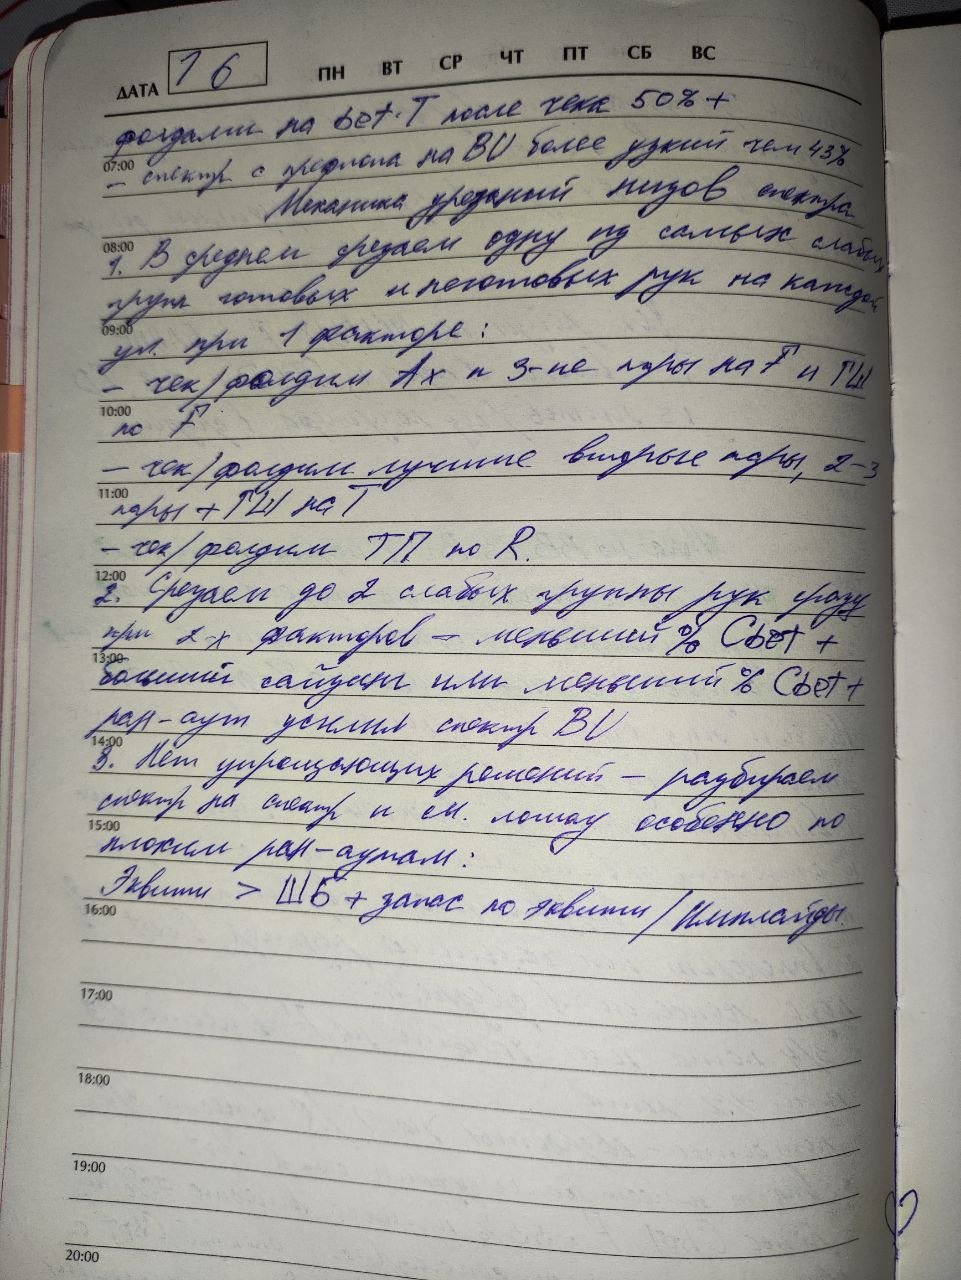 ДАТА 16 ПН ВТ СР ЧТ ПТ СБ ВС
фолдами на bet T после чека 50% +
07:00
- спектр с префлопа на BU более узкий чем 43%
Механика урезаний низов спектра
08:00
1. В среднем срезаем одну из самых слабых
групп готовых и неготовых рук на каждой
09:00
ул. при 1 факторе:
- чек/фолдим Ax и 3-ие пары на F и ГШ
10:00
по F
- чек/фолдим лучшие вторые пары, 2-3
11:00
пары + ГШ на T
- чек/фолдим ТП по R.
12:00
2. Срезаем до 2 слабых группы рук сразу
при 2-х факторов - меньший % Cbet +
13:00
больший сайзинг или меньший % Cbet +
ран-аут усилил спектр BU
14:00
3. Нет упрощающих решений - разбираем
спектр на спектр и см. особенно по
15:00
плохим ран-аутам:
Эквити > ШБ + запас по эквити / Имплайды.
16:00
17:00
18:00
19:00
20:00